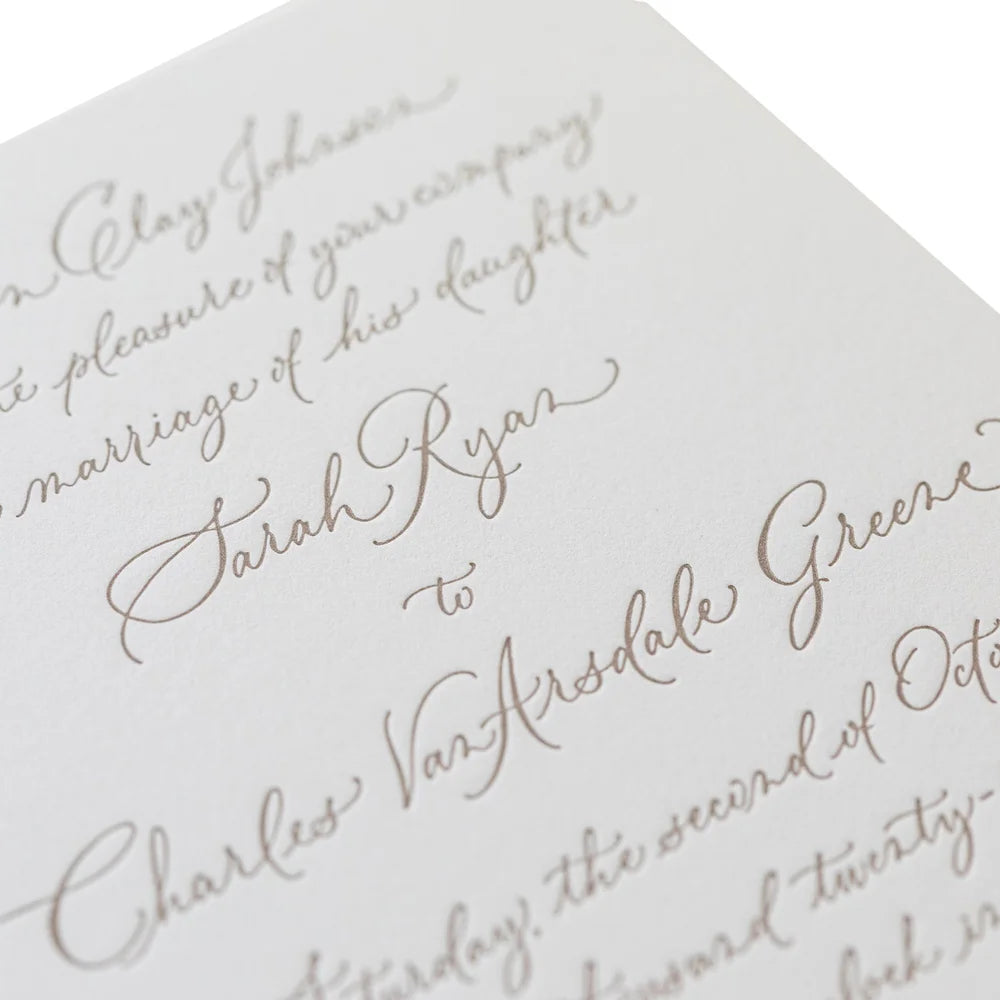 Clay Johnson
pleasure of your company
marriage of his daughter
Sarah Ryan
to
Charles VanArsdale Greene
the second of
twenty-